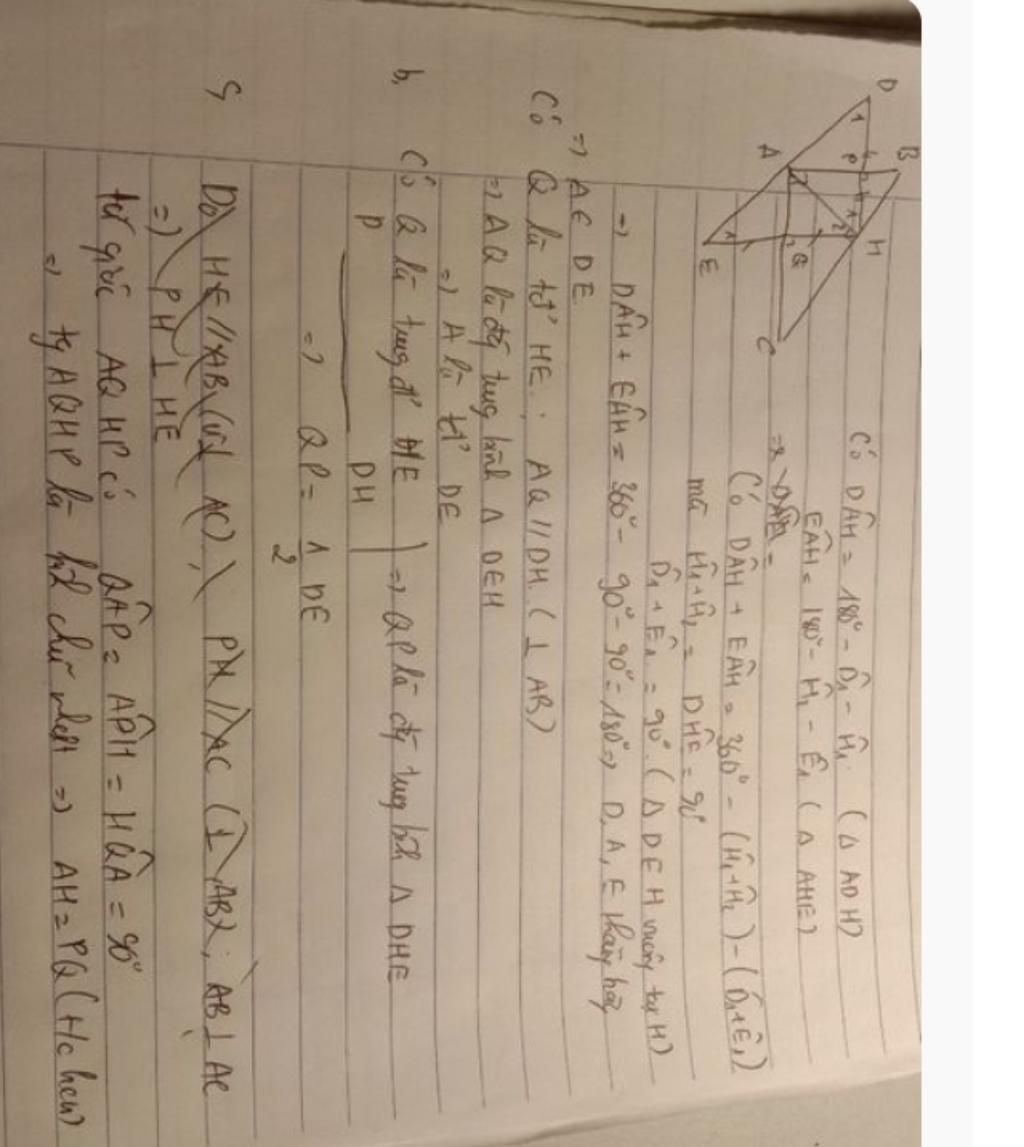 D
B
1
P
1
2
H
A
1
Q
E
C
Có DÂH = 180° - D̂₁ - Ĥ₁. (Δ ADH)
EÂH = 180° - Ĥ₂ - Ê₁ (Δ AHE)
=> DÂE =
Có DÂH + EÂH = 360° - (Ĥ₁+Ĥ₂) - (D̂₁+Ê₁)
mà Ĥ₁+Ĥ₂ = DĤE = 90°
D̂₁ + Ê₁ = 90°. (Δ DEH vuông tại H)
=> DÂH + EÂH = 360° - 90° - 90° = 180° => D, A, E thẳng hàng
=> A ∈ DE
Có Q là tđ' HE; AQ // DH. (⊥ AB)
=> AQ là đg trung bình Δ DEH
=> A là tđ' DE
b, Có Q là trung đ' HE
P DH
=> QP là đg trung bình Δ DHE
=> QP = 1/2 DE
Do HE // AB (⊥ AC); PH // AC (⊥ AB); AB ⊥ AC
=> PH ⊥ HE
tứ giác AQHP có QÂP = AP̂H = HQ̂A = 90°
=> tg AQHP là hình chữ nhật => AH = PQ (t/c hcn)